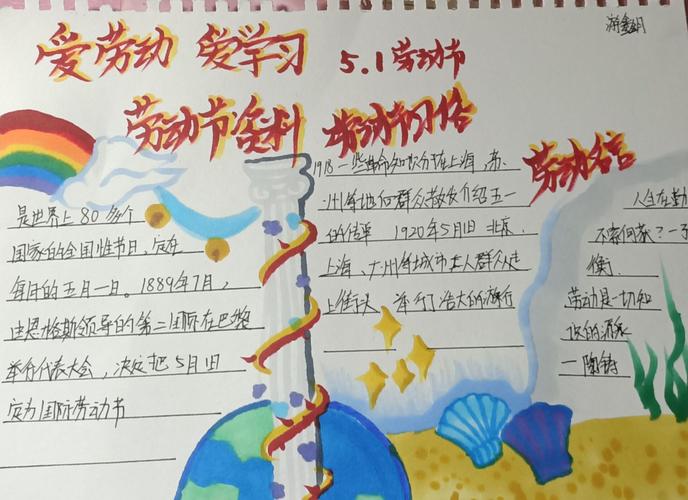 爱劳动 爱学习
5.1劳动节
劳动节资料
劳动节习俗
劳动名言
是世界上80多个
国家的全国性节日。定在
每年的五月一日。1889年7月，
由恩格斯领导的第二国际在巴黎
举行代表大会，决定把5月1日
定为国际劳动节
1918一些革命知识分子在上海、苏
州等地向群众散发介绍五一
的传单 1920年5月1日 北京、
上海、广州等城市工人群众走
上街头 举行了浩大的游行
人生在勤
不索何获？
衡
劳动是一切知
识的源泉
一陶铸